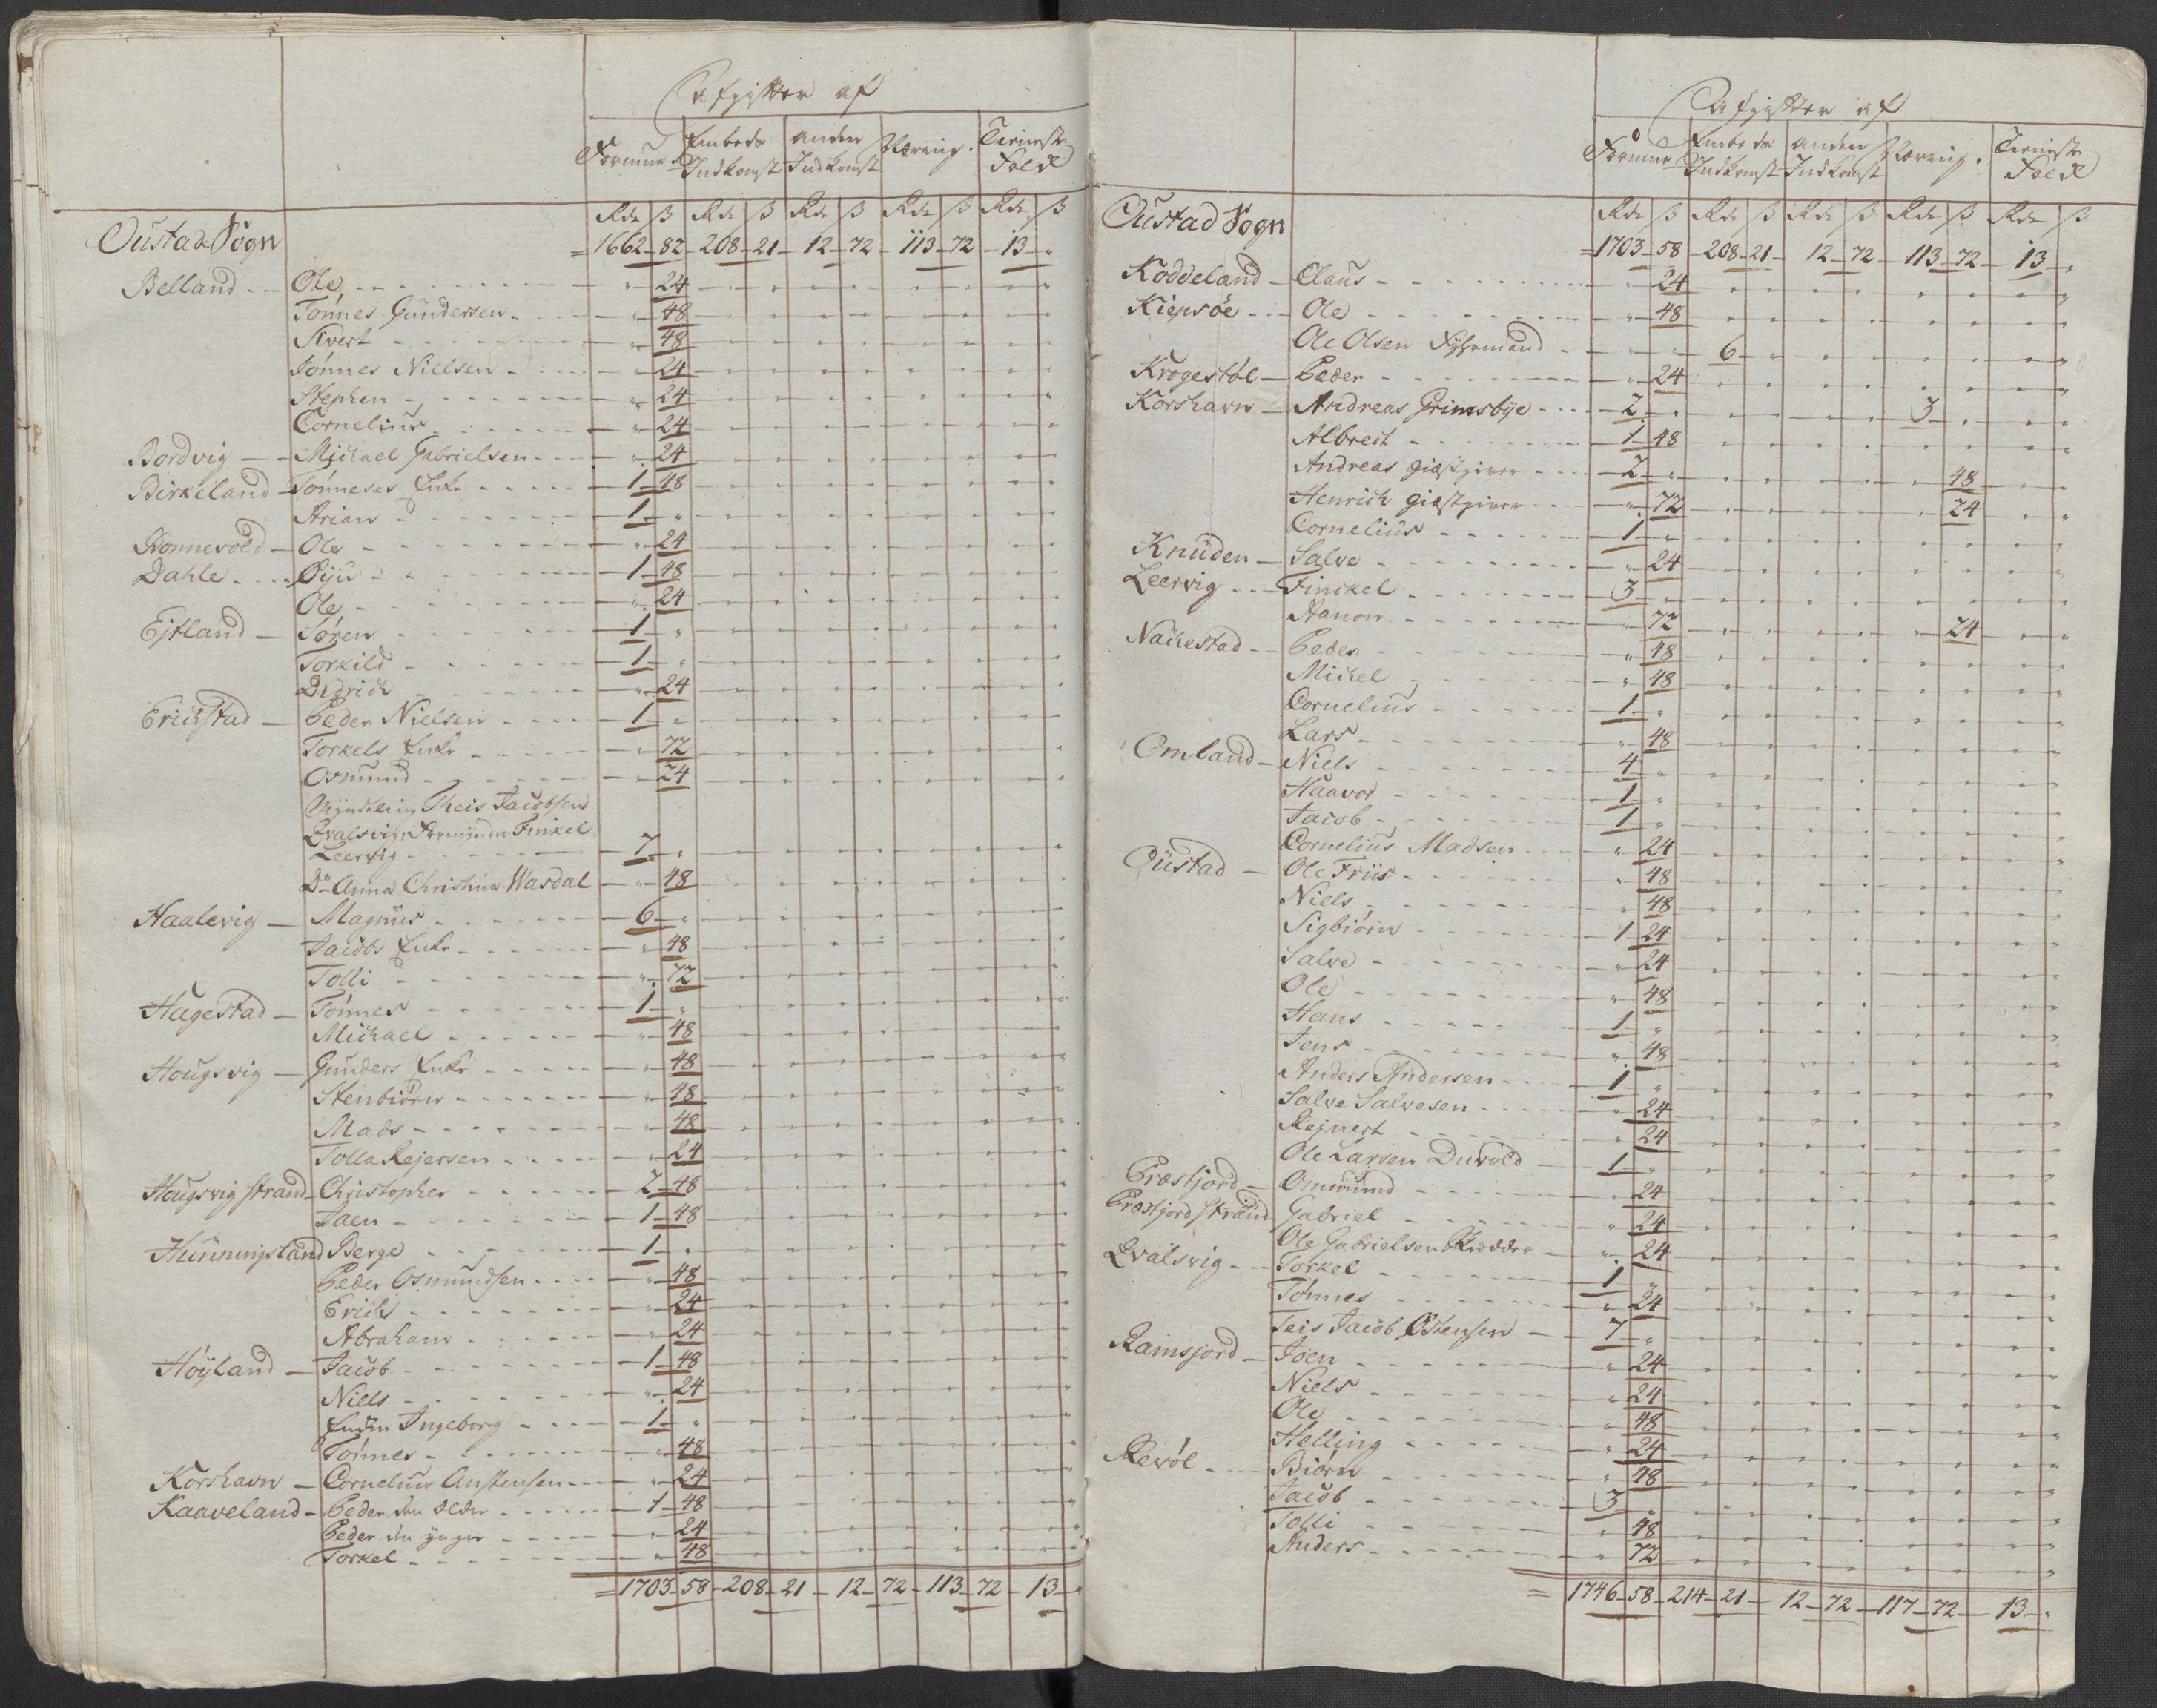 Afgifter af
Formue Embeds Indkomst anden Indkomst Næring. Tieniste Folk
Rdr ß Rdr ß Rdr ß Rdr ß Rdr ß
Oustad Sogn = 1662 - 82 - 208 - 21 - 12 - 72 - 113 - 72 - 13 - "
Belland - Ole - " 24
Tønnes Gundersen - " 48
Sivert - " 48
Tønnes Nielsen - " 24
Stephen - " 24
Cornelius - " 24
Bordvig - Michael Gabrielsen - " 24
Birkeland - Tønneses Enke - 1 - 48
Arian - 1 - "
Bonnevold - Ole - " 24
Dahle - 1 - 48
Ole - " 24
Ejtland - Søren - 1 - "
Torkild - 1 - "
Didrich - " 24
Erichstad - Peder Nielsen - 1 - "
Torkels Enke - " 72
Osmund - " 24
Myndtling Theis Jacobsen
Qvalsvig, Formynder Finkel
Leervig - 7 - "
Do Anna Christina Wasdal - " 48
Haalevig - Magnus - 6 - "
Jacobs Enke - " 48
Tolli - " 72
Hagestad - Tønnes - 1 - "
Michael - " 48
Hougsvig - Gunders Enke - " 48
Stenbiørn - " 48
Mads - " 48
Tolla Rejersen - " 24
Hougsvig strand - Christopher - 2 - 48
Jaen - 1 - 48
Hunningsland Berge - 1 - "
Peder Osmundsen - " 48
Erich - " 24
Abraham - " 24
Høyland - Jacob - 1 - 48
Niels - " 24
Enken Ingeborg - 1 - "
Tønnes - " 48
Korshavn - Cornelius Anstensen - " 24
Kaaveland - Peder den Ældre - 1 - 48
Peder den ynger - " 24
Torkel - " 48
= 1703 - 58 - 208 - 21 - 12 - 72 - 113 - 72 - 13 - "
Afgifter af
Formue Embeds Indkomst anden Indkomst Næring. Tieniste Folk
Rdr ß Rdr ß Rdr ß Rdr ß Rdr ß
Oustad Sogn = 1703 - 58 - 208 - 21 - 12 - 72 - 113 - 72 - 13 - "
Koddeland - Claus - " 24
Kiepsøe - Ole - " 48
Ole Olsen Fyhrmand - " - " - 6 - "
Krogestøl - Peder - " 24
Korshavn - Andreas Grimsbye - 2 - " 3 - "
Albreit - 1 - 48
Andreas giæstgiver - 2 - " 48
Henrich giæstgiver - " 72 " 24
Cornelius - 1 - "
Knuden - Salve - " 24
Leervig - Finckel - 3 - "
Aanon - " 72 " 24
Nachestad - Peder - " 48
Michel - " 48
Cornelius - 1 - "
Lars - " 48
Omland - Niels - 4 - "
Haavor - 1 - "
Jacob - 1 - "
Cornelius Madsen - " 24
Oustad - Ole Friis - " 48
Niels - " 48
Sigbiørn - 1 - 24
Salve - " 24
Ole - " 48
Hans - 1 - "
Jens - " 48
Anders Andersen - 1 - "
Salve Salvesen - " 24
Rejnert - " 24
Ole Larsen Duvold - 1 - "
Præstjord - Osmund - " 24
Præstjord strand Gabriel - " 24
Ole Gabrielsen - " 24
Qvalsvig - Torkel - 1 - "
Tønnes - " 24
Teis Jacob Østensen - 7 - "
Ramsjord - Joen - " 24
Niels - " 24
Ole - " 48
Helling - " 24
Revøl - Biørn - " 48
Jacob - 3 - "
Tolli - " 48
Anders - " 72
= 1746 - 58 - 214 - 21 - 12 - 72 - 117 - 72 - 13 - "